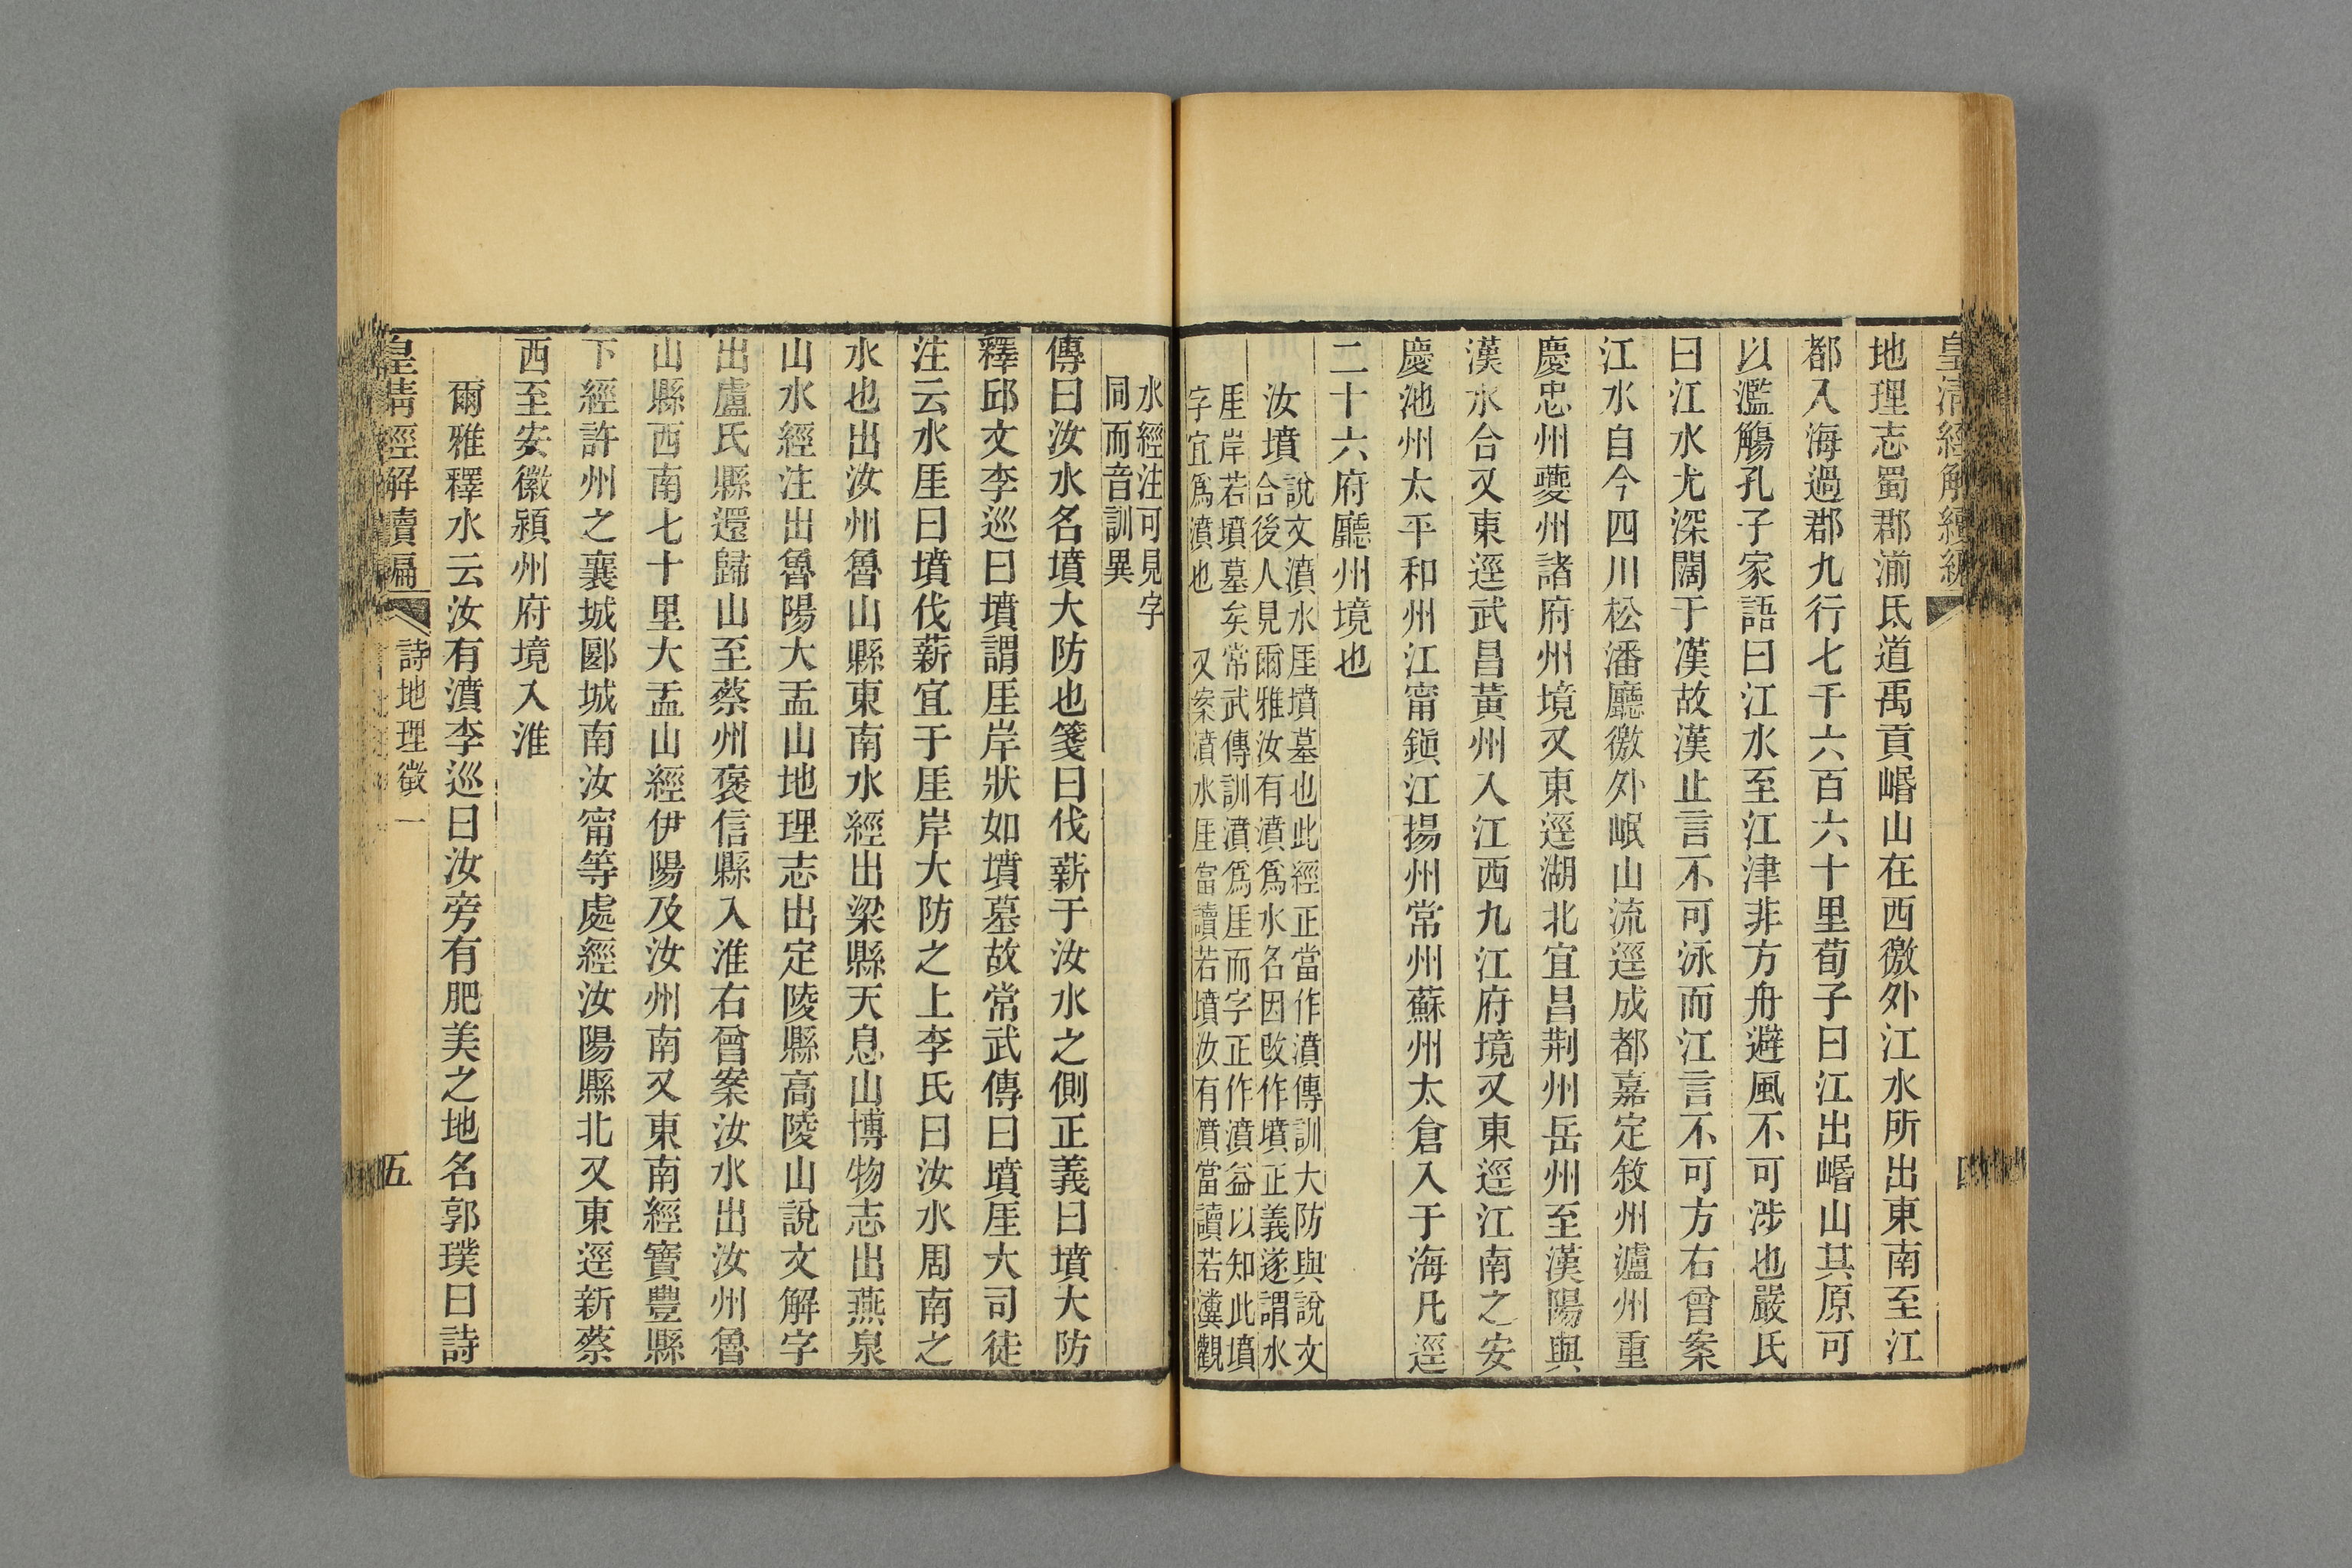 地理志蜀郡湔氐道禹貢崏山在西徼外江水所出東南至江
都入海過郡九行七千六百六十里荀子曰江出崏山其原可
以濫觴孔子家語曰江水至江津非方舟避風不可涉也嚴氏
曰江水尤深闊于漢故漢止言不可泳而江言不可方右曾案
江水自今四川松潘廳徼外岷山流逕成都嘉定敘州瀘州重
慶忠州夔州諸府州境又東逕湖北宜昌荆州岳州至漢陽與
漢水合又東逕武昌黃州入江西九江府境又東逕江南之安
慶池州太平和州江甯鎭江揚州常州蘇州太倉入于海凡逕
二十六府廳州境也
汝墳
說文濆水厓墳墓也此經正當作濆傳訓大防與說文
合後人見爾雅汝有濆爲水名因改作墳正義遂謂水
厓岸若墳墓矣常武傳訓濆爲厓而字正作濆益以知此墳
字宜爲濆也 又案濆水厓當讀若墳汝有濆當讀若瀵觀
水經注可見字
同而音訓異
傳曰汝水名墳大防也箋曰伐薪于汝水之側正義曰墳大防
釋邱文李巡曰墳謂厓岸狀如墳墓故常武傳曰墳厓大司徒
注云水厓曰墳伐薪宜于厓岸大防之上李氏曰汝水周南之
水也出汝州魯山縣東南水經出梁縣天息山博物志出燕泉
山水經注出魯陽大盂山地理志出定陵縣高陵山說文解字
出盧氏縣還歸山至蔡州褒信縣入淮右曾案汝水出汝州魯
山縣西南七十里大盂山經伊陽及汝州南又東南經寶豐縣
下經許州之襄城郾城南汝甯等處經汝陽縣北又東逕新蔡
西至安徽潁州府境入淮
爾雅釋水云汝有濆李巡曰汝旁有肥美之地名郭璞曰詩
皇清經解續編
詩地理徵一
五